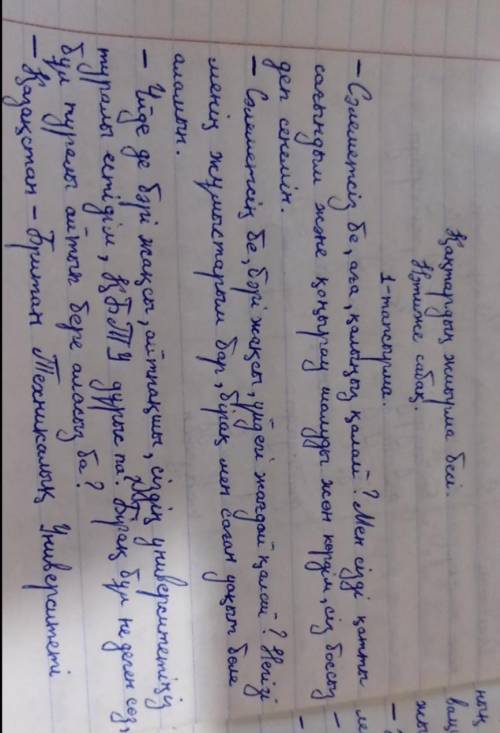 Қаңтардың жиырма бесі.
Нәтиже сабақ.
1-тапсырма.
– Сәлеметсіз бе, аға, қалыңыз қалай? Мен сізді қатты
сағындым және қоңырау шалуды жөн көрдім, сіз боссыз
деп сенемін.
– Сәлеметсің бе, бәрі жақсы, үйдегі жағдай қалай? Негізі
менің жұмыстарым бар, бірақ мен саған уақыт бөле
аламын.
– Үйде де бәрі жақсы, айтпақшы, сіздің университетіңіз
туралы естідім, ҚБТУ дұрыс па. Бірақ бұл не деген сөз,
бұл туралы айтып бере аласың ба?
– Қазақстан – Британ Техникалық Университеті
ның
ваш
жы
ле